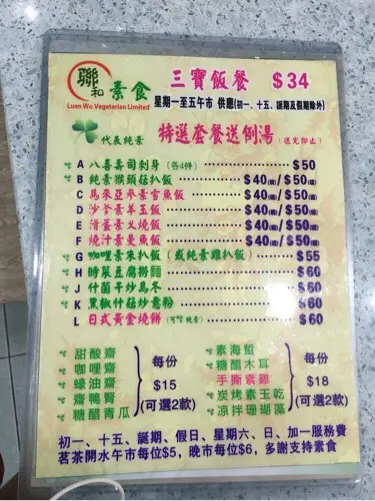 聯和素食
Luen Wo Vegetarian Limited
三寶飯餐 $34
星期一至五午市 供應(初一、十五、誕期及假期除外)
代表純素
特選套餐送例湯(送完即止)
A 八喜壽司刺身(各4件) $50
B 純素猴頭菇扒飯 $40/$50
C 馬來亞參素雪魚飯 $40/$50
D 沙爹素羊玉飯 $40/$50
E 滑蛋素叉燒飯 $40/$50
F 燒汁素鰻魚飯 $40/$50
G 咖哩素朱扒飯(或純素雞扒飯) $55
H 時菜豆腐撈麵 $60
J 什菌干炒烏冬 $60
K 黑椒什菇炒意粉 $60
L 日式黃金燒餅(可純素) $60
甜酸齋
咖哩齋
蠔油齋
齋鴨腎
糖醋青瓜
每份
$15
(可選2款)
素海蜇
糖醋木耳
手撕素雞
炭烤素玉乾
涼拌珊瑚藻
每份
$18
(可選2款)
初一、十五、誕期、假日、星期六、日、加一服務費
茗茶開水午市每位$5,晚市每位$6,多謝支持素食